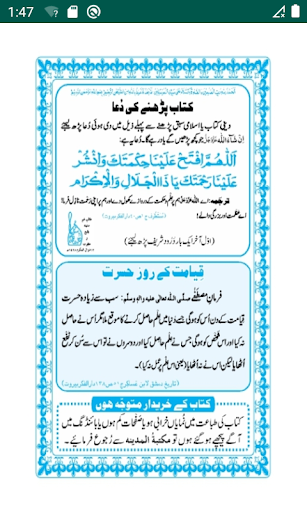 1:47
کتاب پڑھنے کی دُعا
دینی کتاب یا اسلامی سبق پڑھنے سے پہلے ذیل میں دی ہوئی دُعا پڑھ لیجئے
اِنْ شَآءَ اللہ عَزَّوَجَلَّ جو کچھ پڑھیں گے یاد رہے گا۔ دُعا یہ ہے:
اَللّٰهُمَّ افْتَحْ عَلَيْنَا حِكْمَتَكَ وَانْشُرْ
عَلَيْنَا رَحْمَتَكَ يَا ذَا الْجَلَالِ وَالْاِكْرَام
ترجمہ: اے اللہ عَزَّوَجَلَّ ہم پر علم و حکمت کے دروازے کھول دے اور ہم پر اپنی رحمت نازل فرما!
اے عظمت اور بزرگی والے!
(اوّل آخر ایک بار دُرود شریف پڑھ لیجئے)
قِیامت کے روز حسرت
فرمانِ مصطَفٰے صلی اللہ تعالٰی علیہ واٰلہ وسلم: سب سے زیادہ حسرت
قیامت کے دن اُس کو ہوگی جسے دُنیا میں علم حاصل کرنے کا موقع ملا مگر اُس نے حاصل
نہ کیا اور اس شخص کو ہوگی جس نے علم حاصل کیا اور دوسروں نے تو اس سے سن کر نفع
اُٹھایا لیکن اس نے نہ اُٹھایا (یعنی اس علم پر عمل نہ کیا)
(تاریخ دمشق لابن عساکر ج۵۱ ص۱۳۸ دارالفکر بیروت)
کتاب کے خریدار متوجّه هوں
کتاب کی طباعت میں نُمایاں خرابی ہو یا صفحات کم ہوں یا بائنڈنگ میں
آگے پیچھے ہو گئے ہوں تو مکتبۃُ المدینہ سے رُجوع فرمائیے۔